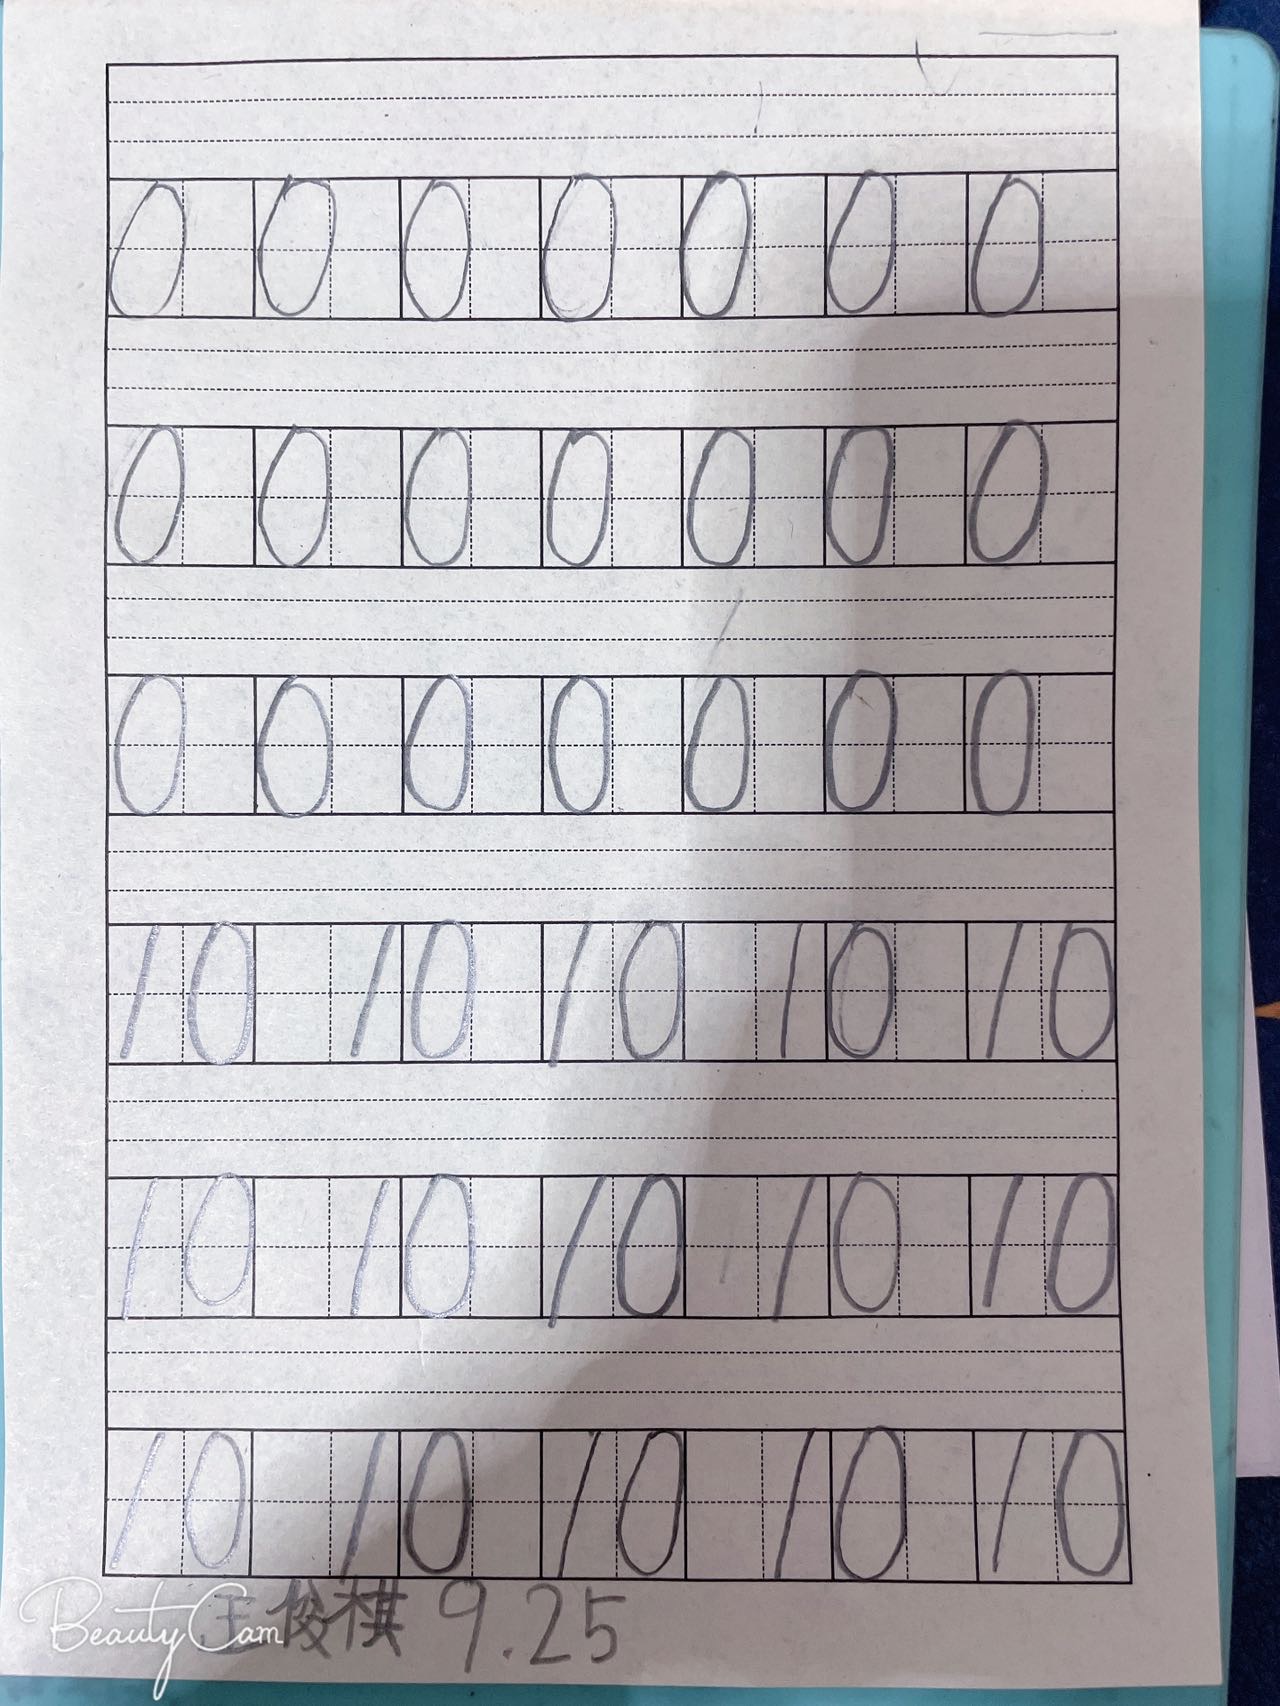 0 0 0 0 0 0 0
0 0 0 0 0 0 0
0 0 0 0 0 0 0
10 10 10 10 10
10 10 10 10 10
10 10 10 10 10
王俊祺 9.25
BeautyCam